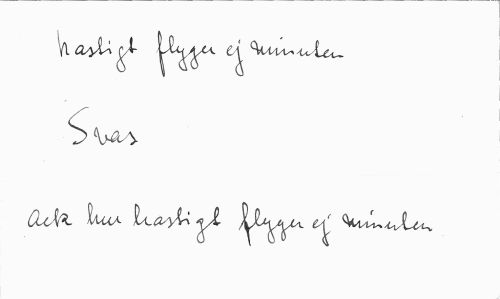 hastigt flyger ej minuten
Svar
Ack hur hastigt flyger ej minuten